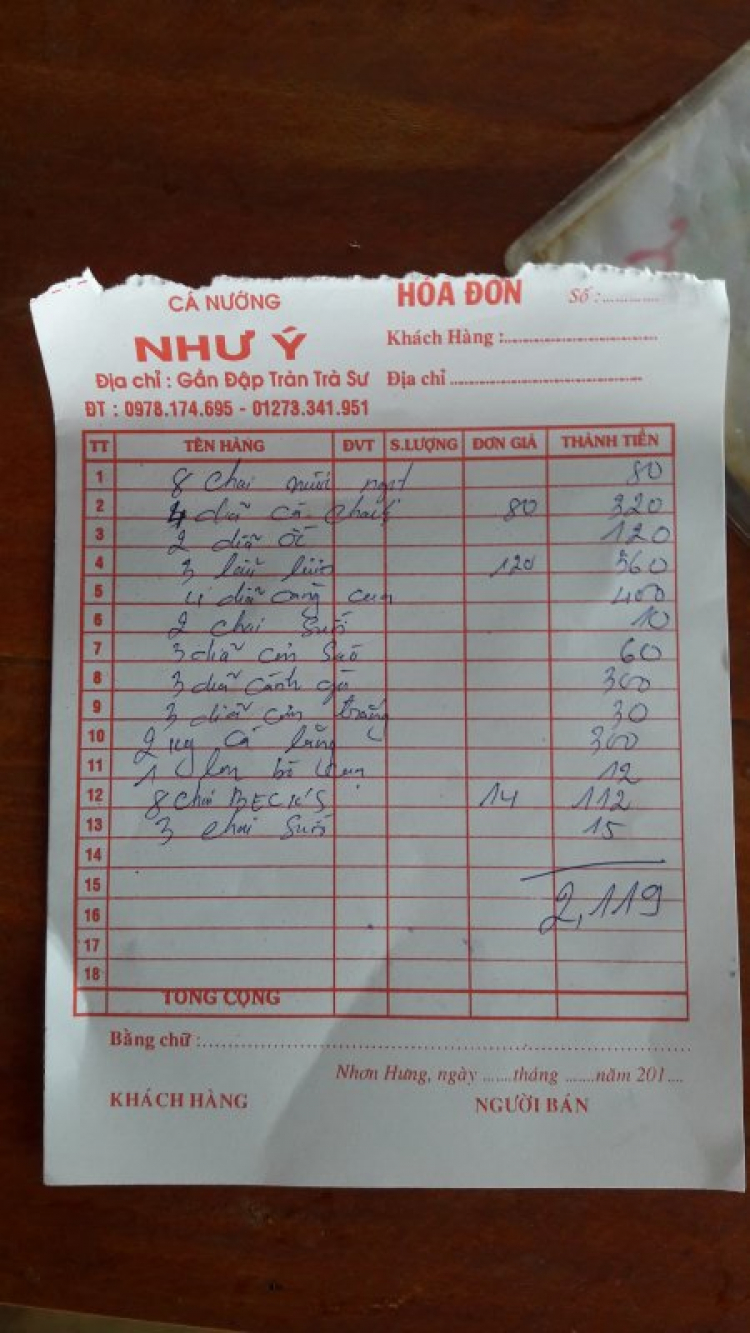 CÁ NƯỚNG HÓA ĐƠN Số :..............
NHƯ Ý Khách Hàng :..............................
Địa chỉ : Gần Đập Tràn Trà Sư Địa chỉ ..............................
ĐT : 0978.174.695 - 01273.341.951
TT TÊN HÀNG ĐVT S.LƯỢNG ĐƠN GIÁ THÀNH TIỀN
1 8 chai nước ngọt 80
2 4 dĩa cá 80 320
3 2 dĩa ốc 120
4 3 lẩu 120 360
5 4 dĩa 400
6 2 chai suối 10
7 3 dĩa 60
8 3 dĩa cánh gà 300
9 3 dĩa cơm trắng 30
10 2 kg cá 300
11 1 lon bò 12
12 8 chai BECK'S 14 112
13 3 chai suối 15
14
15
2,119
16
17
18
TỔNG CỘNG
Bằng chữ :..............................
Nhơn Hưng, ngày .......tháng .......năm 201....
KHÁCH HÀNG NGƯỜI BÁN